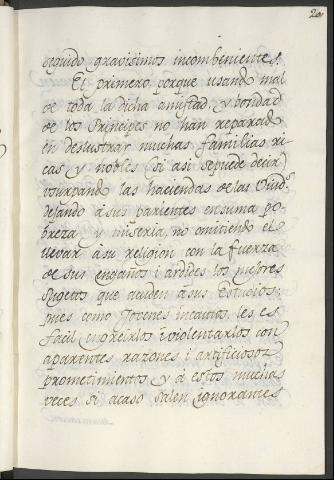 20
seguido gravisimos incombenientes.
El primero porque usando mal
de toda la dicha amistad, y bondad
de los Principes no han reparado
en deslustrar muchas familias ri-
cas y nobles (si asi sepuede decir)
usurpando las haciendas de las Viud.s
dejando à sus parientes en suma po-
breza y miseria, no omitiendo el
llevar à su religion con la fuerza
de sus engaños i ardides los mejores
sugetos que acuden à sus Estudios:
pues como Jovenes incautos, les es
facil i violentarlos con
aparentes razones i artificiosos
prometimientos y à estos muchas
veces si acaso salen ignorantes